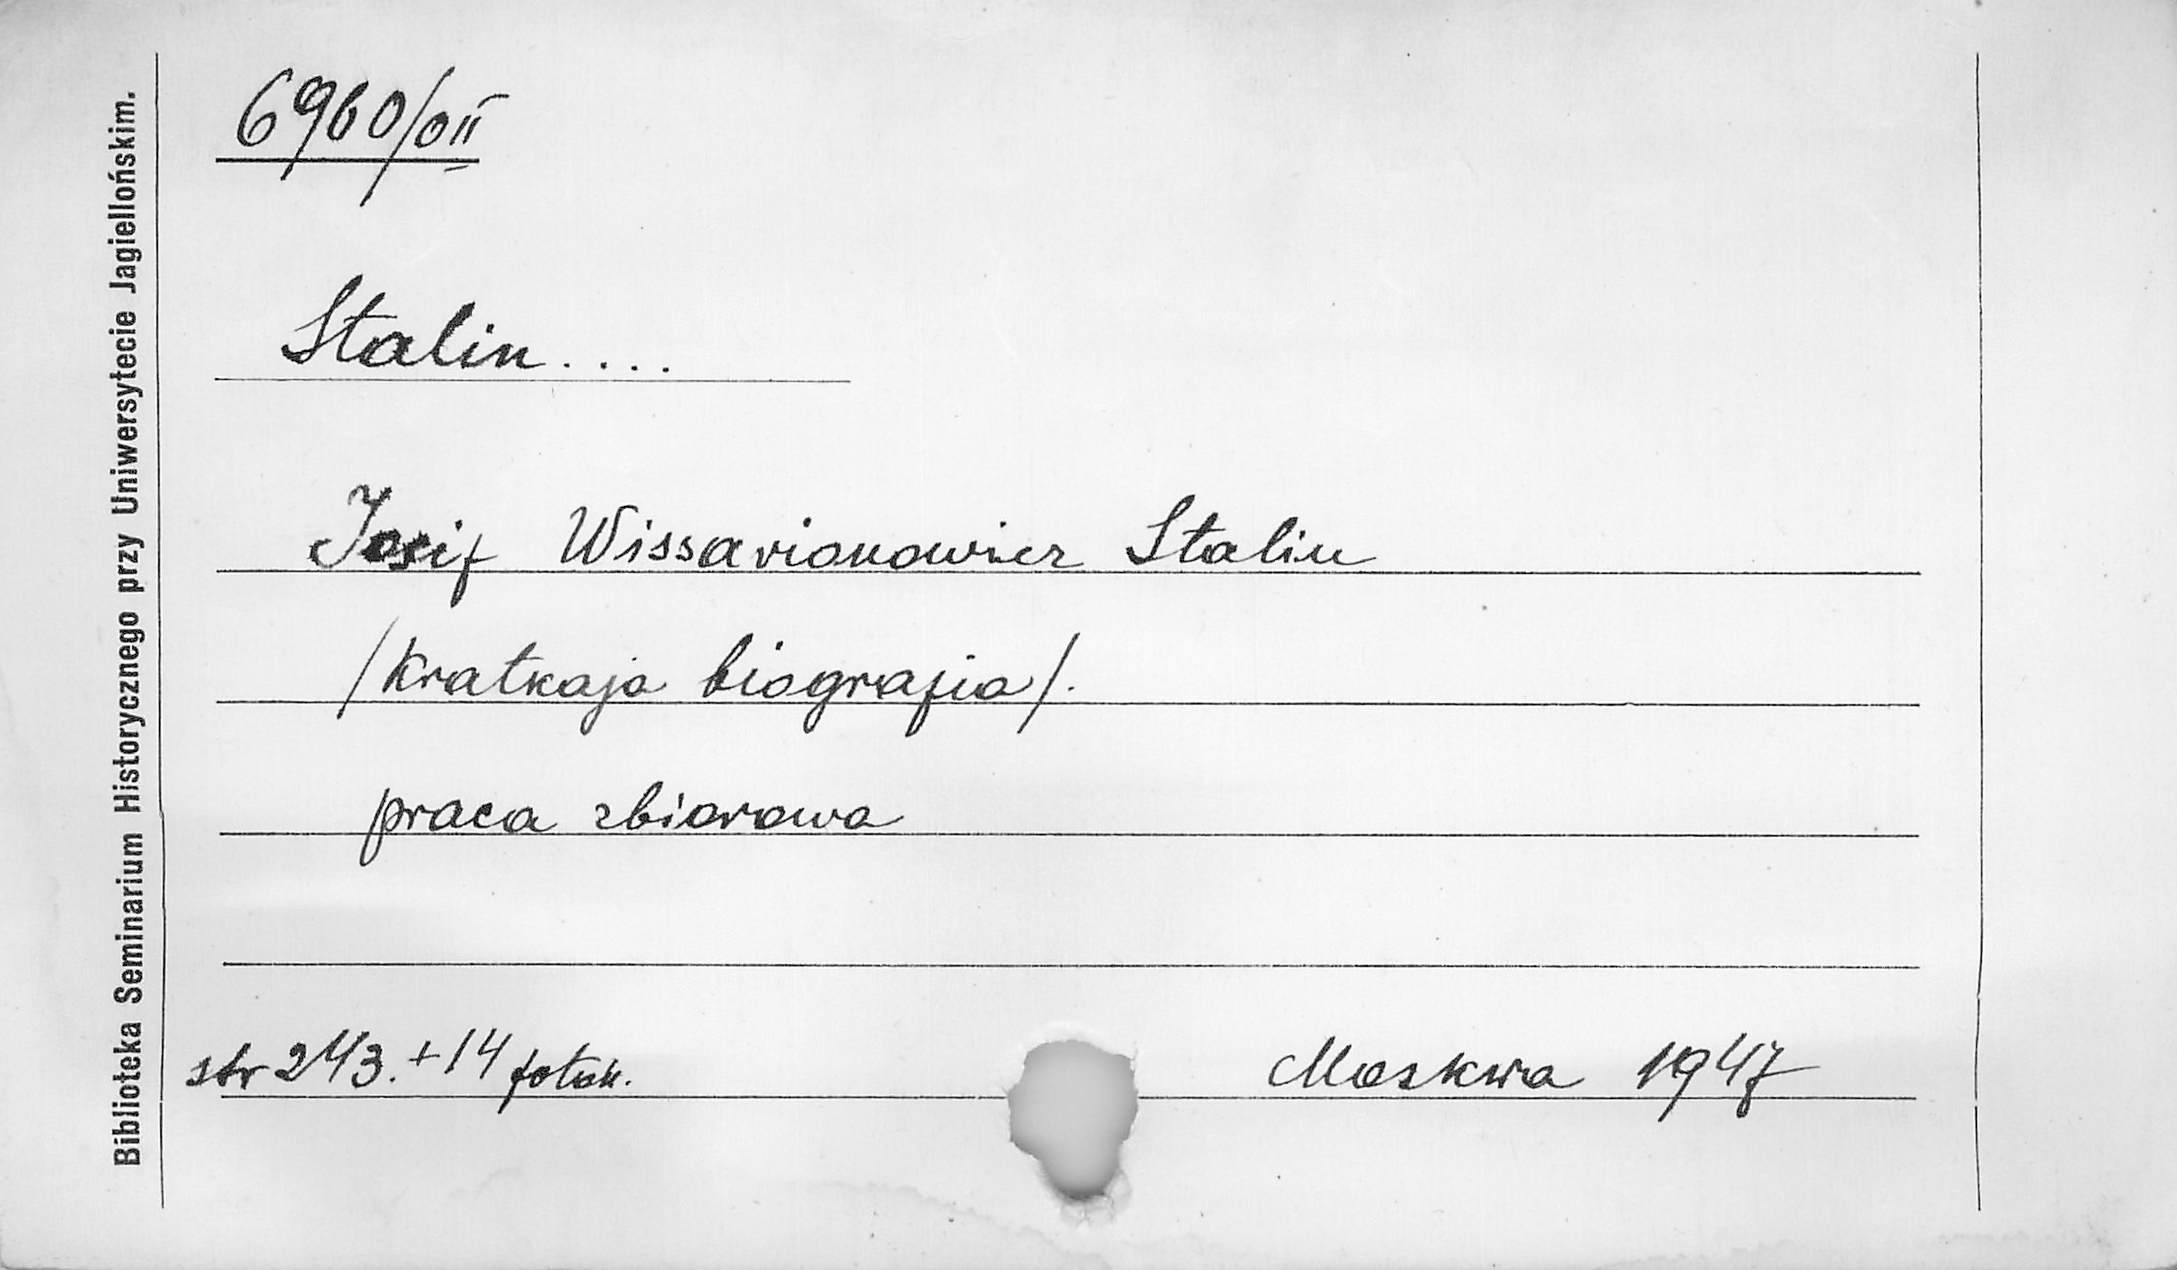 Biblioteka Seminarium Historycznego przy Uniwersytecie Jagiellońskim.
6960/OII
Stalin....
Josif Wissarionowicz Stalin
/Kratkaja biografia/.
praca zbiorowa
str 243.+14 fotok.
Moskwa 1947